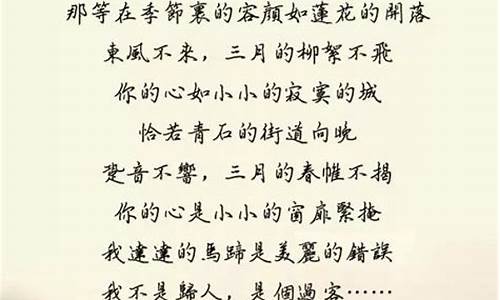 那等在季節裏的容顏如蓮花的開落
東風不來，三月的柳絮不飛
你的心如小小的寂寞的城
恰若青石的街道向晚
跫音不響，三月的春帷不揭
你的心是小小的窗扉緊掩
我達達的馬蹄是美麗的錯誤
我不是歸人，是個過客……